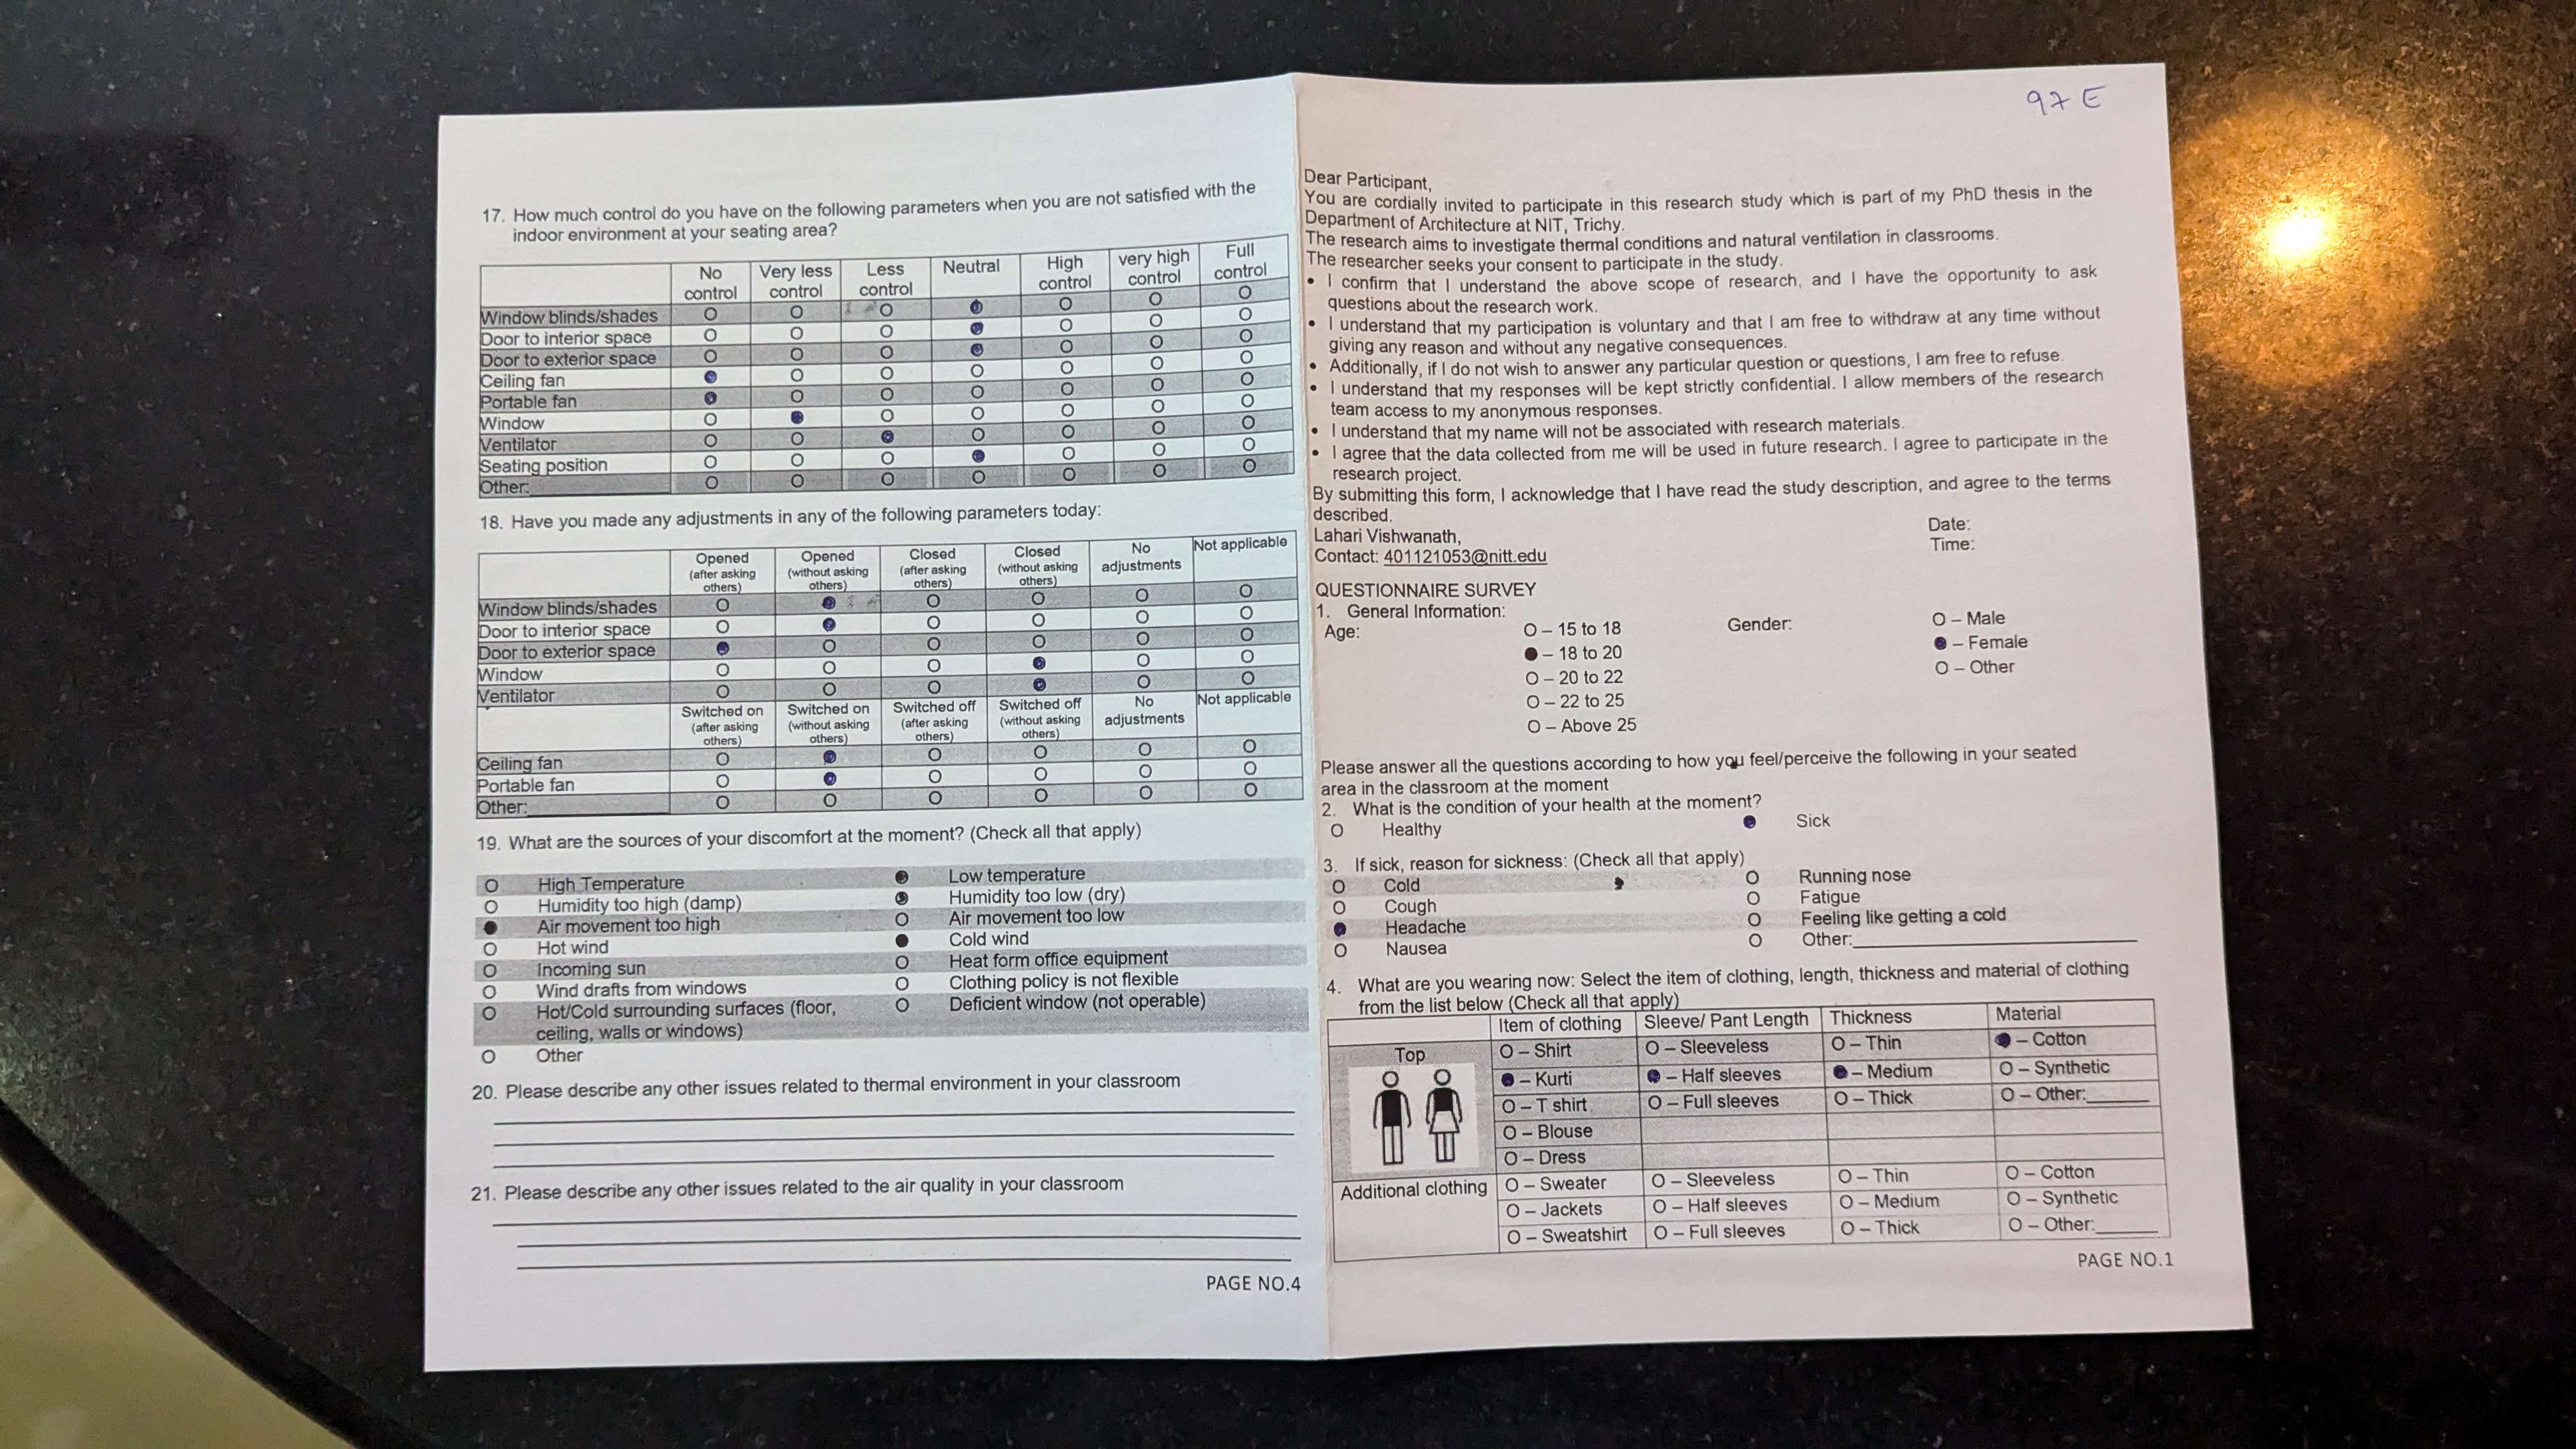 17. How much control do you have on the following parameters when you are not satisfied with the
indoor environment at your seating area?
No control Very less control Less control Neutral High control very high control Full control
Window blinds/shades O O O ● O O O
Door to interior space O O O ● O O O
Door to exterior space O O O ● O O O
Ceiling fan ● O O O O O O
Portable fan ● O O O O O O
Window O ● O O O O O
Ventilator O O ● O O O O
Seating position O O O ● O O O
Other: O O O O O O O
18. Have you made any adjustments in any of the following parameters today:
Opened (after asking others) Opened (without asking others) Closed (after asking others) Closed (without asking others) No adjustments Not applicable
Window blinds/shades O ● O O O O
Door to interior space O ● O O O O
Door to exterior space ● O O O O O
Window O O O ● O O
Ventilator O O O ● O O
Switched on (after asking others) Switched on (without asking others) Switched off (after asking others) Switched off (without asking others) No adjustments Not applicable
Ceiling fan O ● O O O O
Portable fan O ● O O O O
Other: O O O O O O
19. What are the sources of your discomfort at the moment? (Check all that apply)
O High Temperature ● Low temperature
O Humidity too high (damp) ● Humidity too low (dry)
● Air movement too high O Air movement too low
O Hot wind ● Cold wind
O Incoming sun O Heat form office equipment
O Wind drafts from windows O Clothing policy is not flexible
O Hot/Cold surrounding surfaces (floor, O Deficient window (not operable)
ceiling, walls or windows)
O Other
20. Please describe any other issues related to thermal environment in your classroom
21. Please describe any other issues related to the air quality in your classroom
PAGE NO.4
97 E
Dear Participant,
You are cordially invited to participate in this research study which is part of my PhD thesis in the
Department of Architecture at NIT, Trichy.
The research aims to investigate thermal conditions and natural ventilation in classrooms.
The researcher seeks your consent to participate in the study.
• I confirm that I understand the above scope of research, and I have the opportunity to ask
questions about the research work.
• I understand that my participation is voluntary and that I am free to withdraw at any time without
giving any reason and without any negative consequences.
• Additionally, if I do not wish to answer any particular question or questions, I am free to refuse.
• I understand that my responses will be kept strictly confidential. I allow members of the research
team access to my anonymous responses.
• I understand that my name will not be associated with research materials.
• I agree that the data collected from me will be used in future research. I agree to participate in the
research project.
By submitting this form, I acknowledge that I have read the study description, and agree to the terms
described.
Lahari Vishwanath, Date:
Contact: 401121053@nitt.edu Time:
QUESTIONNAIRE SURVEY
1. General Information:
Age: O – 15 to 18 Gender: O – Male
● – 18 to 20 ● – Female
O – 20 to 22 O – Other
O – 22 to 25
O – Above 25
Please answer all the questions according to how you feel/perceive the following in your seated
area in the classroom at the moment
2. What is the condition of your health at the moment?
O Healthy ● Sick
3. If sick, reason for sickness: (Check all that apply)
O Cold O Running nose
O Cough O Fatigue
● Headache O Feeling like getting a cold
O Nausea O Other:
4. What are you wearing now: Select the item of clothing, length, thickness and material of clothing
from the list below (Check all that apply)
Item of clothing Sleeve/ Pant Length Thickness Material
Top O – Shirt O – Sleeveless O – Thin ● – Cotton
● – Kurti ● – Half sleeves ● – Medium O – Synthetic
O – T shirt O – Full sleeves O – Thick O – Other:
O – Blouse
O – Dress
Additional clothing O – Sweater O – Sleeveless O – Thin O – Cotton
O – Jackets O – Half sleeves O – Medium O – Synthetic
O – Sweatshirt O – Full sleeves O – Thick O – Other:
PAGE NO.1